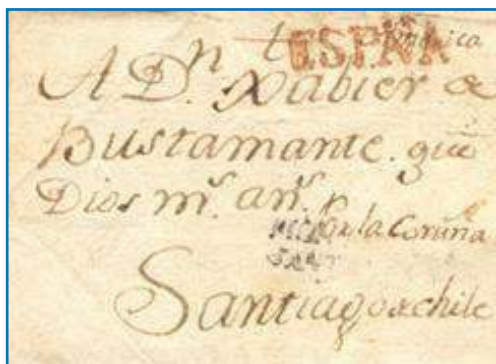 ESPÑA
A Dⁿ. Xabier de
Bustamante. que
Dios mˢ. anˢ.
de la Coruña
Santiago de chile